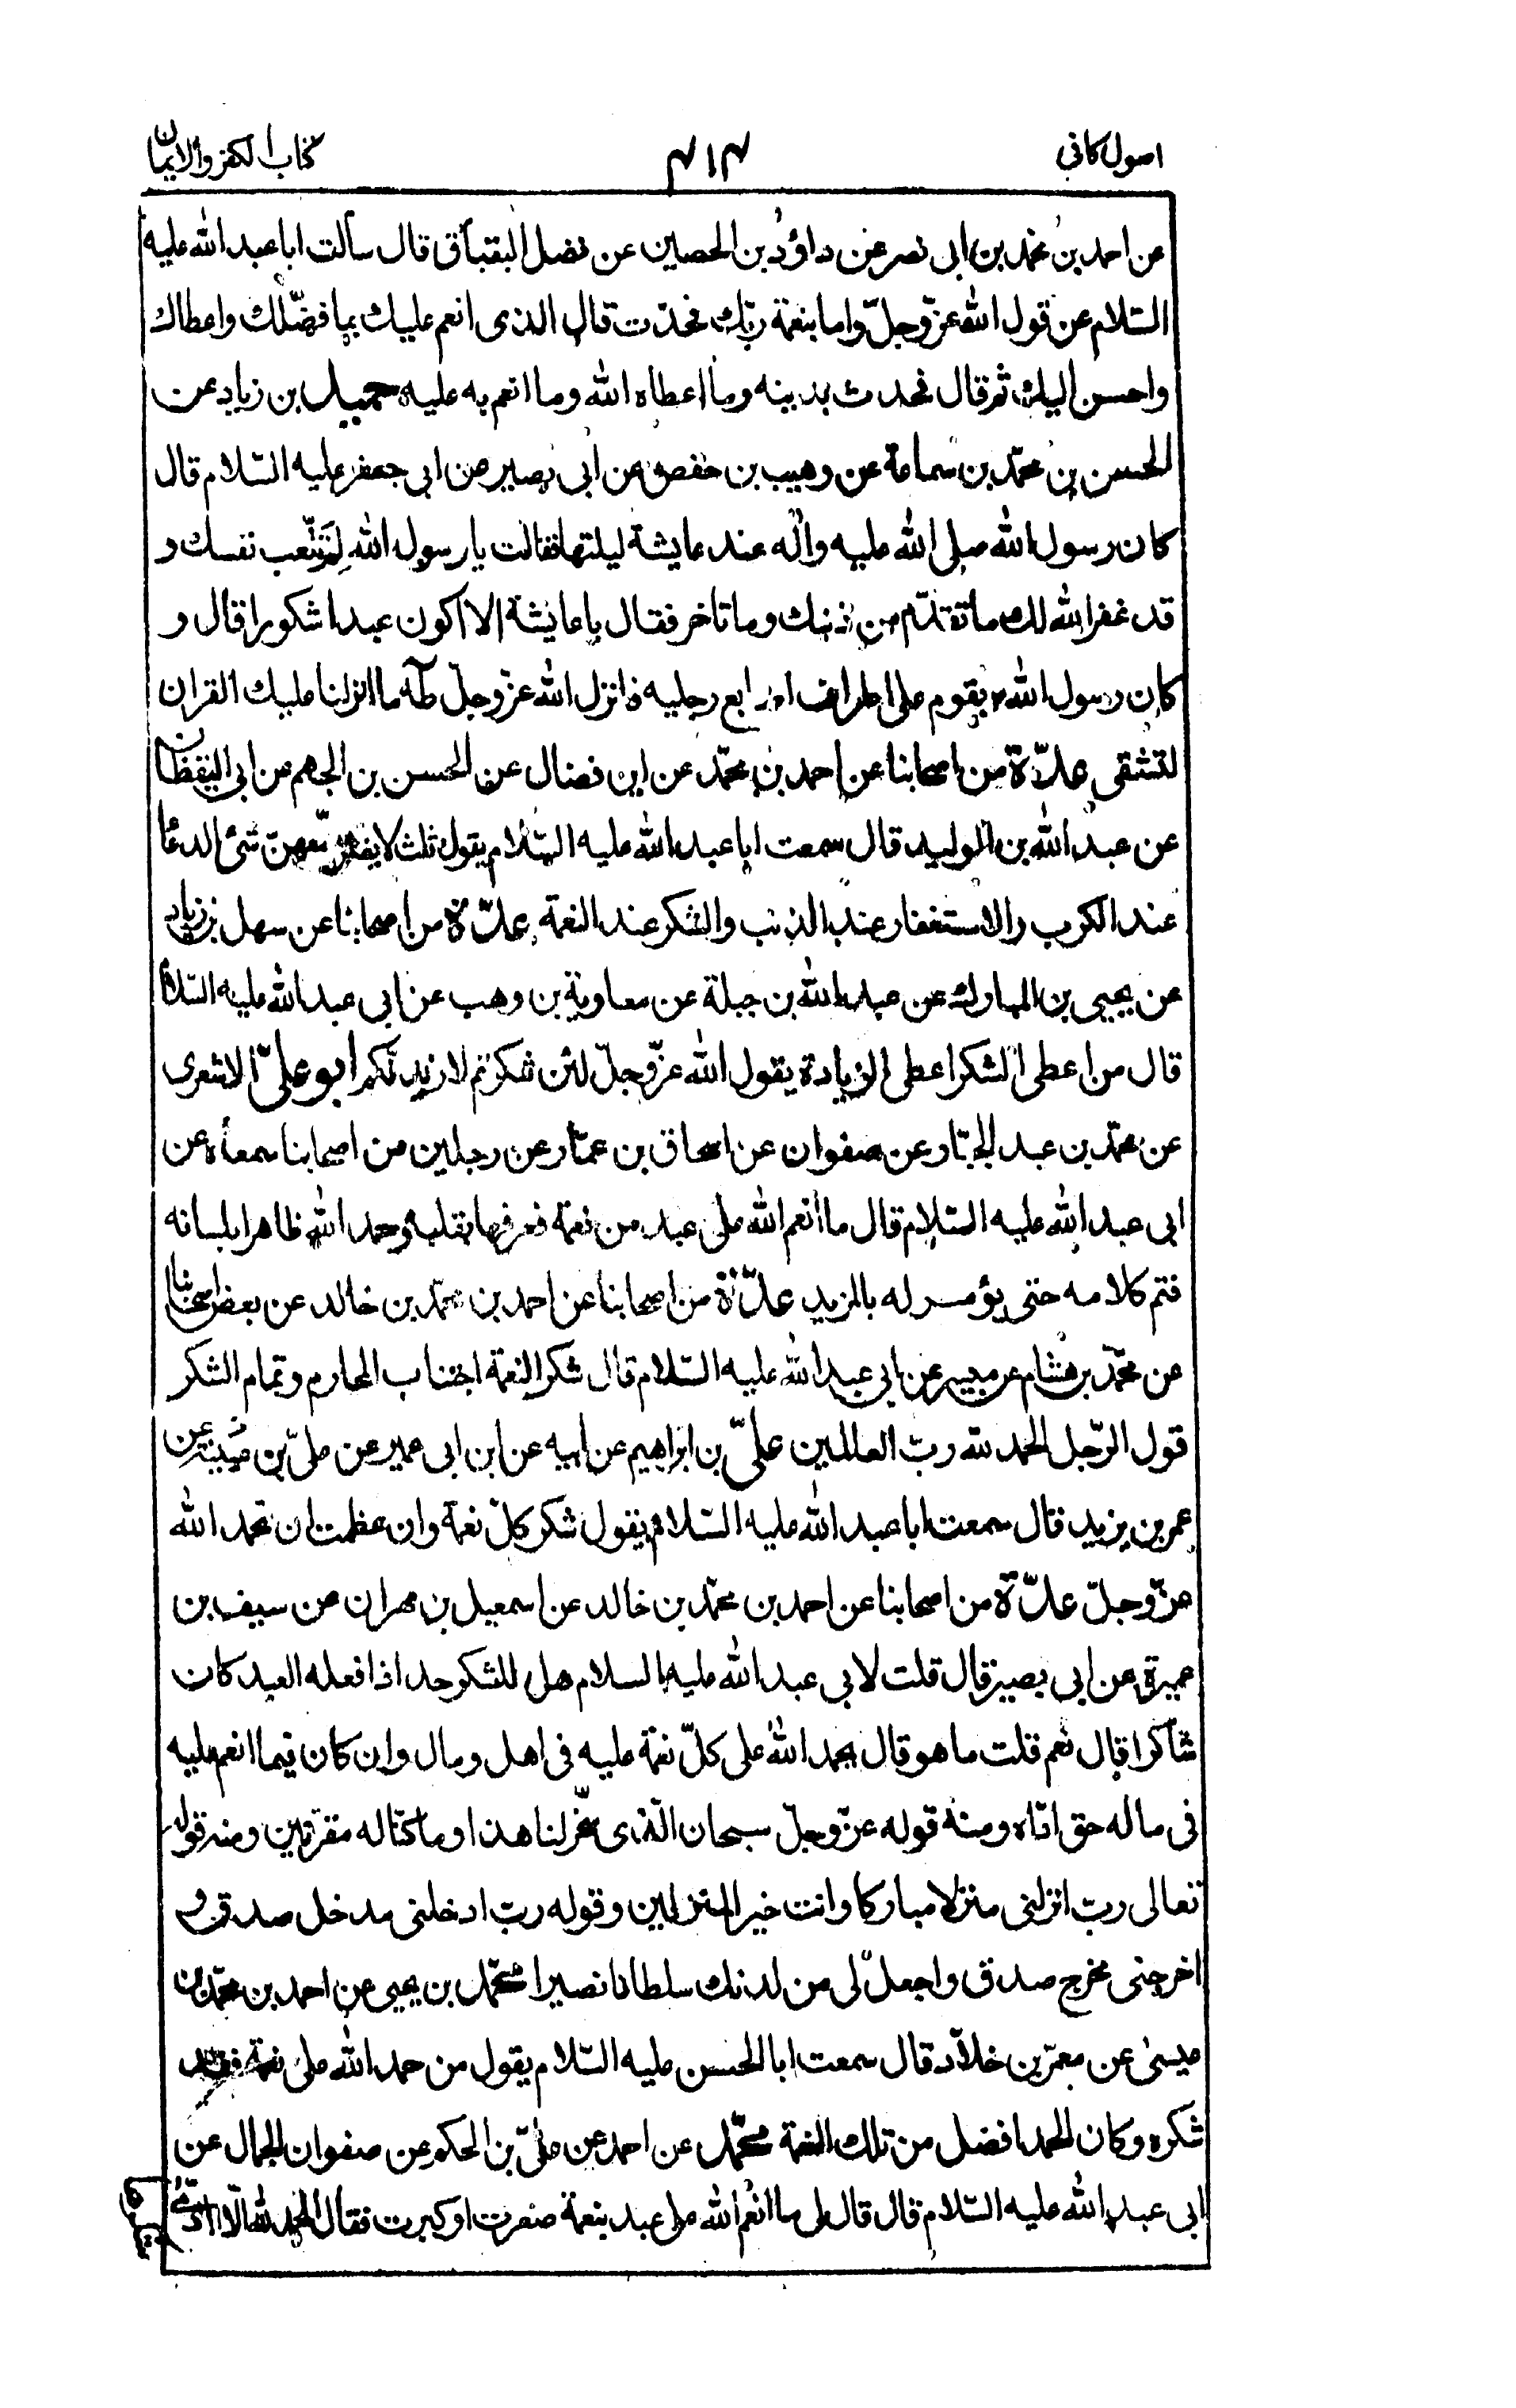 اصول كافى ٤١٤ كتاب الكفر والايمان
عن احمد بن محمد بن ابى نصر عن داؤد بن الحصين عن فضل البقباق قال سألت ابا عبد الله عليه
السّلام عن قول الله عزّوجلّ واما بنعمة ربّك فحدّث قال الذى انعم عليك بما فضّلك واعطاك
واحسن اليك ثم قال فحدث بدينه وما اعطاه الله وما انعم به عليه حميد بن زياد عن
الحسن بن محمّد بن سماعة عن وهيب بن حفص عن ابى بصير عن ابى جعفر عليه السّلام قال
كان رسول الله صلى الله عليه واٰله عند عايشة ليلتها فقالت يا رسول الله لِمَ تتّعب نفسك و
قد غفر الله لك ما تقدّم من ذنبك وما تاخر فقال يا عايشة الا اكون عبدا شكورا قال و
كان رسول الله ص يقوم على اطراف اصابع رجليه فانزل الله عزّوجلّ طٰه ما انزلنا عليك القران
لتشقى عدّة من اصحابنا عن احمد بن محمّد عن ابن فضال عن الحسن بن الجهم عن ابى اليقظان
عن عبد الله بن الوليد قال سمعت ابا عبد الله عليه السّلام يقول ثلث لا يضرّ معهنّ شئ الدعا
عند الكرب والاستغفار عند الذنب والشكر عند النعمة عدّة من اصحابنا عن سهل بن زياد
عن يحيى بن المبارك عن عبد الله بن جبلة عن معاوية بن وهب عن ابى عبد الله عليه السّلام
قال من اعطى الشكر اعطى الزيادة يقول الله عزّوجلّ لئن شكرتم لازيدنّكم ابو علىّ الاشعرى
عن محمّد بن عبد الجبّار عن صفوان عن اسحاق بن عمّار عن رجلين من اصحابنا سمعاه عن
ابى عبد الله عليه السّلام قال ما أنعم الله على عبد من نعمة فعرفها بقلبه وحمد الله ظاهرا بلسانه
فتم كلامه حتى يؤمر له بالمزيد عدّة من اصحابنا عن احمد بن محمّد بن خالد عن بعض اصحابنا
عن محمّد بن هشام عن ميسر عن ابى عبد الله عليه السّلام قال شكر النعمة اجتناب المحارم وتمام الشكر
قول الرّجل الحمد لله ربّ العالمين علىّ بن ابراهيم عن ابيه عن ابن ابى عمير عن علىّ بن عيينة عن
عمر بن يزيد قال سمعت ابا عبد الله عليه السّلام يقول شكر كلّ نعمة وان عظمت ان تحمد الله
عزّوجلّ عدّة من اصحابنا عن احمد بن محمّد بن خالد عن اسمعيل بن مهران عن سيف بن
عميرة عن ابى بصير قال قلت لابى عبد الله عليه السلام هل للشكر حد اذا فعله العبد كان
شاكرا قال نعم قلت ما هو قال يحمد الله على كلّ نعمة عليه فى اهل ومال وان كان فيما انعم عليه
فى ماله حق ادّاه ومنه قوله عزّوجلّ سبحان الّذى سخّر لنا هذا وما كنّا له مقرنين ومنه قوله
تعالى ربّ انزلنى منزلا مباركا وانت خير المنزلين وقوله ربّ ادخلنى مدخل صدق و
اخرجنى مخرج صدق واجعل لى من لدنك سلطانا نصيرا محمّد بن يحيى عن احمد بن محمّد بن
عيسىٰ عن معمّر بن خلاّد قال سمعت ابا الحسن عليه السّلام يقول من حمد الله على نعمة فقد
شكره وكان الحمد افضل من تلك النعمة محمّد عن احمد عن علىّ بن الحكم عن صفوان الجمال عن
ابى عبد الله عليه السّلام قال قال لى ما انعم الله على عبد بنعمة صغرت او كبرت فقال الحمد لله الّا ادّى
شكرها